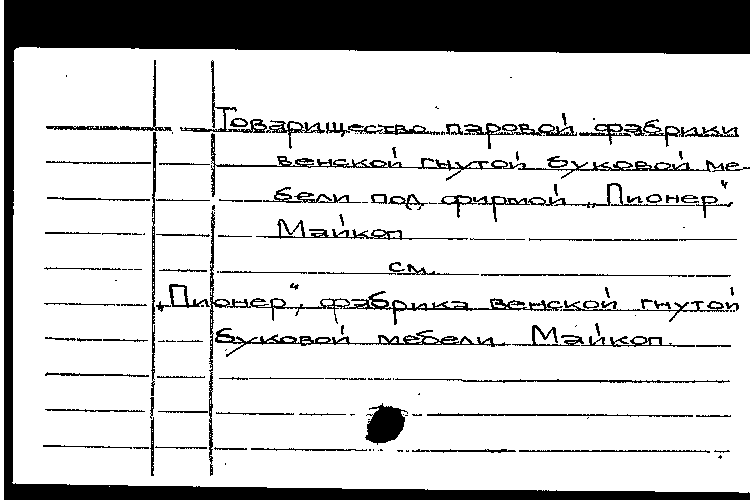 Товарищество паровой фабрики
венской гнутой буковой ме-
бели под фирмой „Пионер“.
Майкоп
см.
„Пионер“, фабрика венской гнутой
буковой мебели. Майкоп.